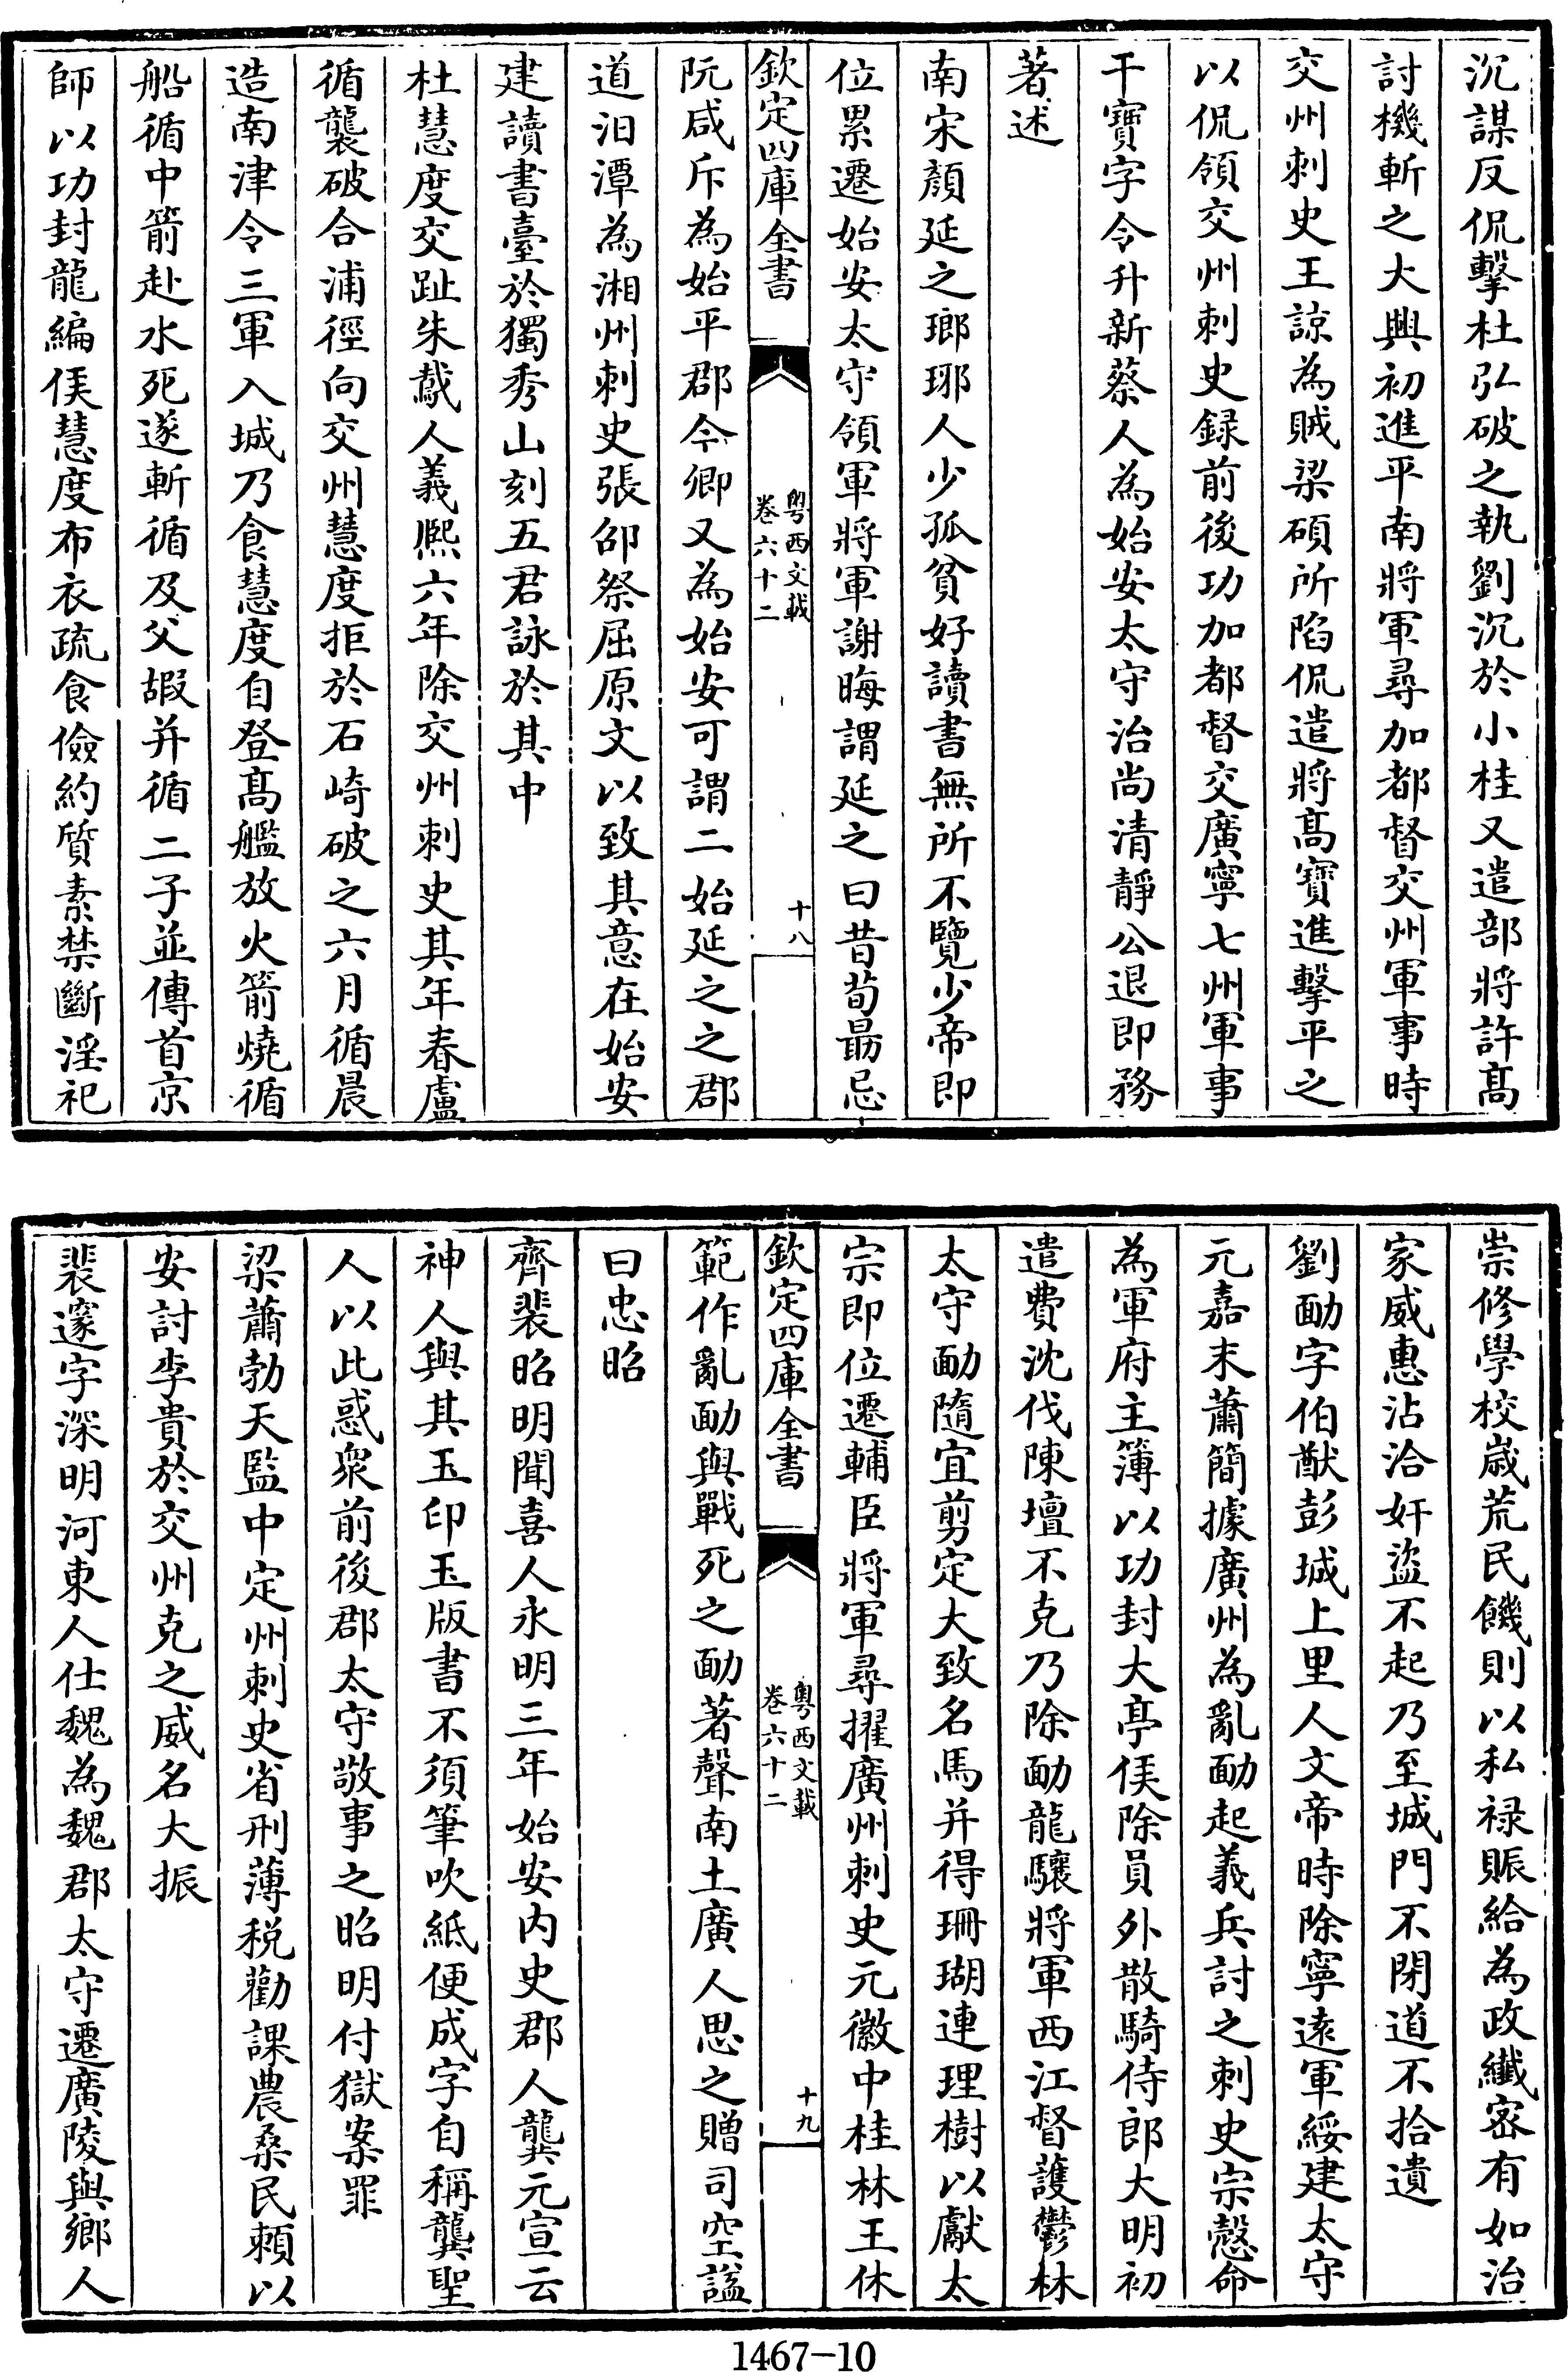 沉謀反侃擊杜弘破之執劉沉於小桂又遣部將許髙
討機斬之大興初進平南將軍尋加都督交州軍事時
交州刺史王諒為賊梁碩所䧟侃遣將髙寶進擊平之
以侃領交州刺史録前後功加都督交廣寧七州軍事
干寳字令升新蔡人為始安太守治尚清靜公退即務
著述
南宋顏延之瑯琊人少孤貧好讀書無所不覽少帝即
位累遷始安太守領軍將軍謝晦謂延之曰昔荀朂忌
欽定四庫全書
粤西文載
卷六十二
十八
阮咸斥為始平郡今卿又為始安可謂二始延之之郡
道汨潭為湘州刺史張邵祭屈原文以致其意在始安
建讀書臺於獨秀山刻五君詠於其中
杜慧度交趾朱䳒人義熈六年除交州刺史其年春盧
循襲破合浦徑向交州慧度拒於石崎破之六月循晨
造南津令三軍入城乃食慧度自登髙艦放火箭燒循
船循中箭赴水死遂斬循及父嘏并循二子並傳首京
師以功封龍編侯慧度布衣疏食儉約質素禁斷淫祀
崇修學校嵗荒民饑則以私禄賑給為政纎宻有如治
家威惠沾洽奸盜不起乃至城門不閉道不拾遺
劉勔字伯猷彭城上里人文帝時除寧逺軍綏建太守
元嘉末蕭簡據廣州為亂勔起義兵討之刺史宗慤命
為軍府主簿以功封大亭侯除員外散騎侍郎大明初
遣費沈伐陳壇不克乃除勔龍驤將軍西江督䕶鬱林
太守勔隨宜剪定大致名馬并得珊瑚連理樹以獻太
宗即位遷輔臣將軍尋擢廣州刺史元徽中桂林王休
欽定四庫全書
粤西文載
卷六十二
十九
範作亂勔與戰死之勔著聲南土廣人思之贈司空諡
曰忠昭
齊裴昭明聞喜人永明三年始安内史郡人龔元宣云
神人與其玉印玉版書不須筆吹紙便成字自稱龔聖
人以此惑衆前後郡太守敬事之昭明付獄案罪
梁蕭勃天監中定州刺史省刑薄税勸課農桑民頼以
安討李賁於交州克之威名大振
裴邃字深明河東人仕魏為魏郡太守遷廣陵與鄉人
1467-10